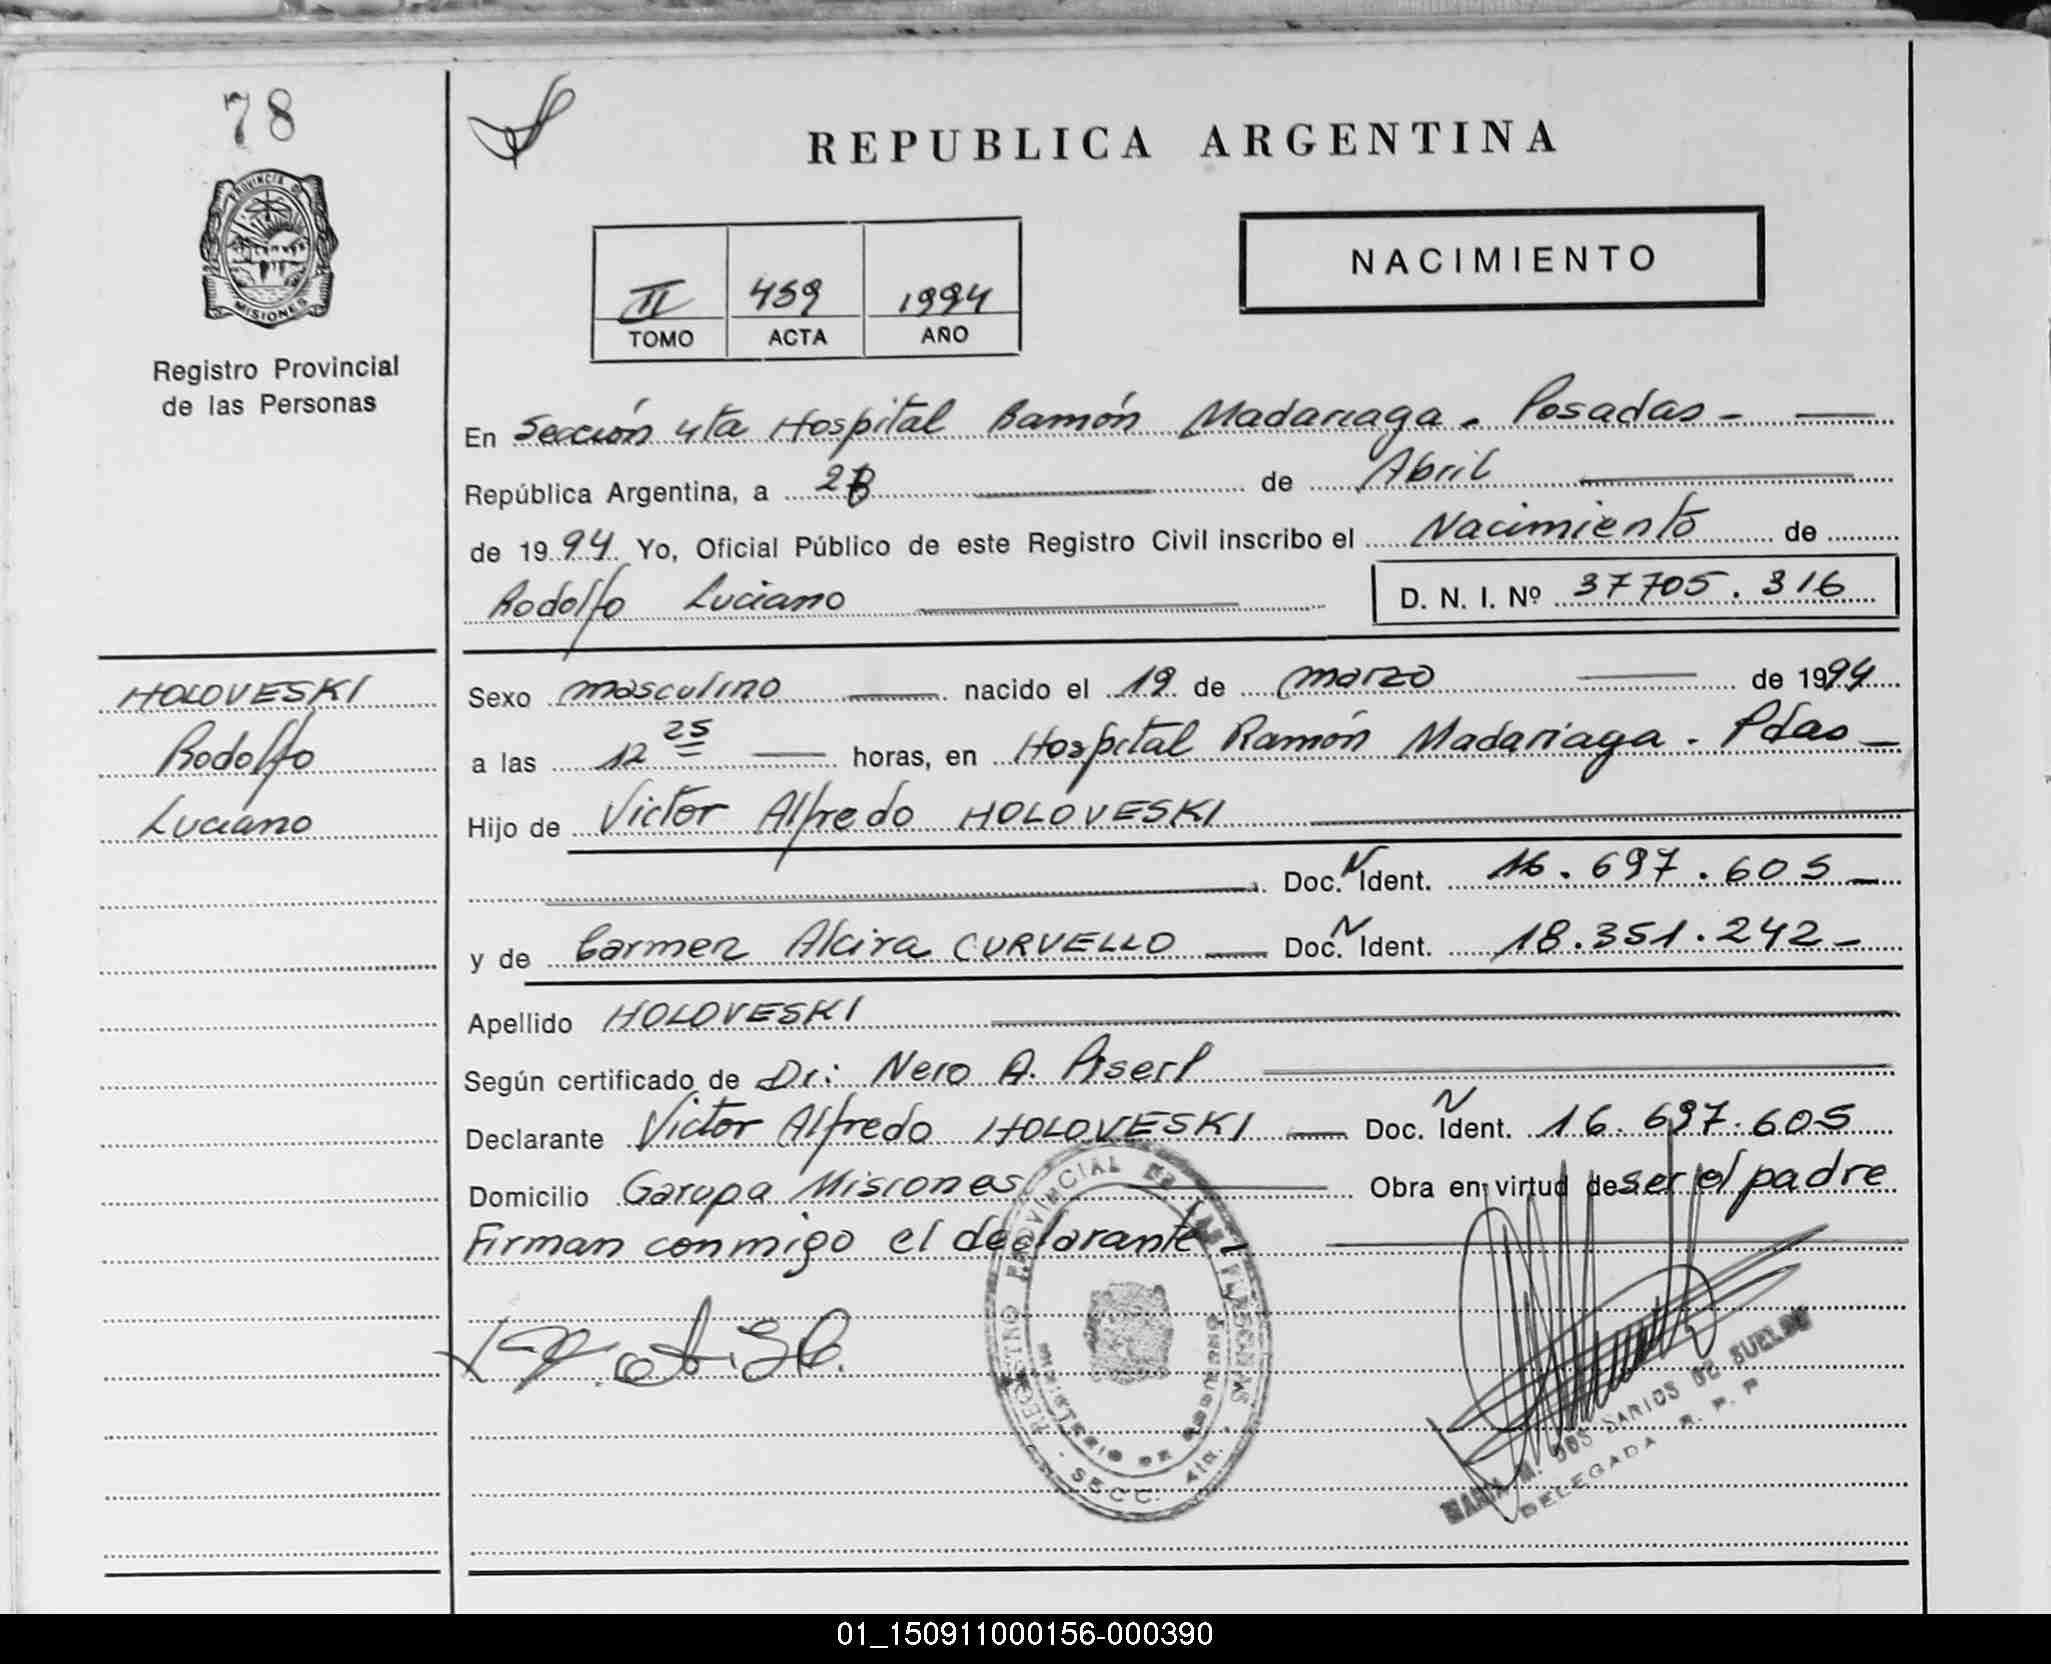 78
PROVINCIA DE
MISIONES
Registro Provincial
de las Personas
REPUBLICA ARGENTINA
NACIMIENTO
II 459 1994
TOMO ACTA AÑO
En Sección 4ta Hospital Ramón Madariaga. Posadas -
República Argentina, a 28 de Abril
de 1994 Yo, Oficial Público de este Registro Civil inscribo el Nacimiento de
Rodolfo Luciano D. N. I. Nº 37705.316
HOLOVESKI
Rodolfo
Luciano
Sexo masculino nacido el 19 de marzo de 1994
a las 12 25 horas, en Hospital Ramón Madariaga. Pdas -
Hijo de Victor Alfredo HOLOVESKI
Doc. N Ident. 16.697.605 -
y de Carmen Alcira CURVELLO Doc. N Ident. 18.351.242 -
Apellido HOLOVESKI
Según certificado de Dr: Nero A. Piserl
Declarante Victor Alfredo HOLOVESKI Doc. N Ident. 16.697.605
Domicilio Garupa Misiones Obra en virtud de ser el padre
Firman conmigo el declarante -
REGISTRO PROVINCIAL DE LAS PERSONAS
MINISTERIO DE GOBIERNO
SECC. 4ta.
MARIA M. DOS SARIOS DE SUELDO
DELEGADA R. P. P
01_150911000156-000390